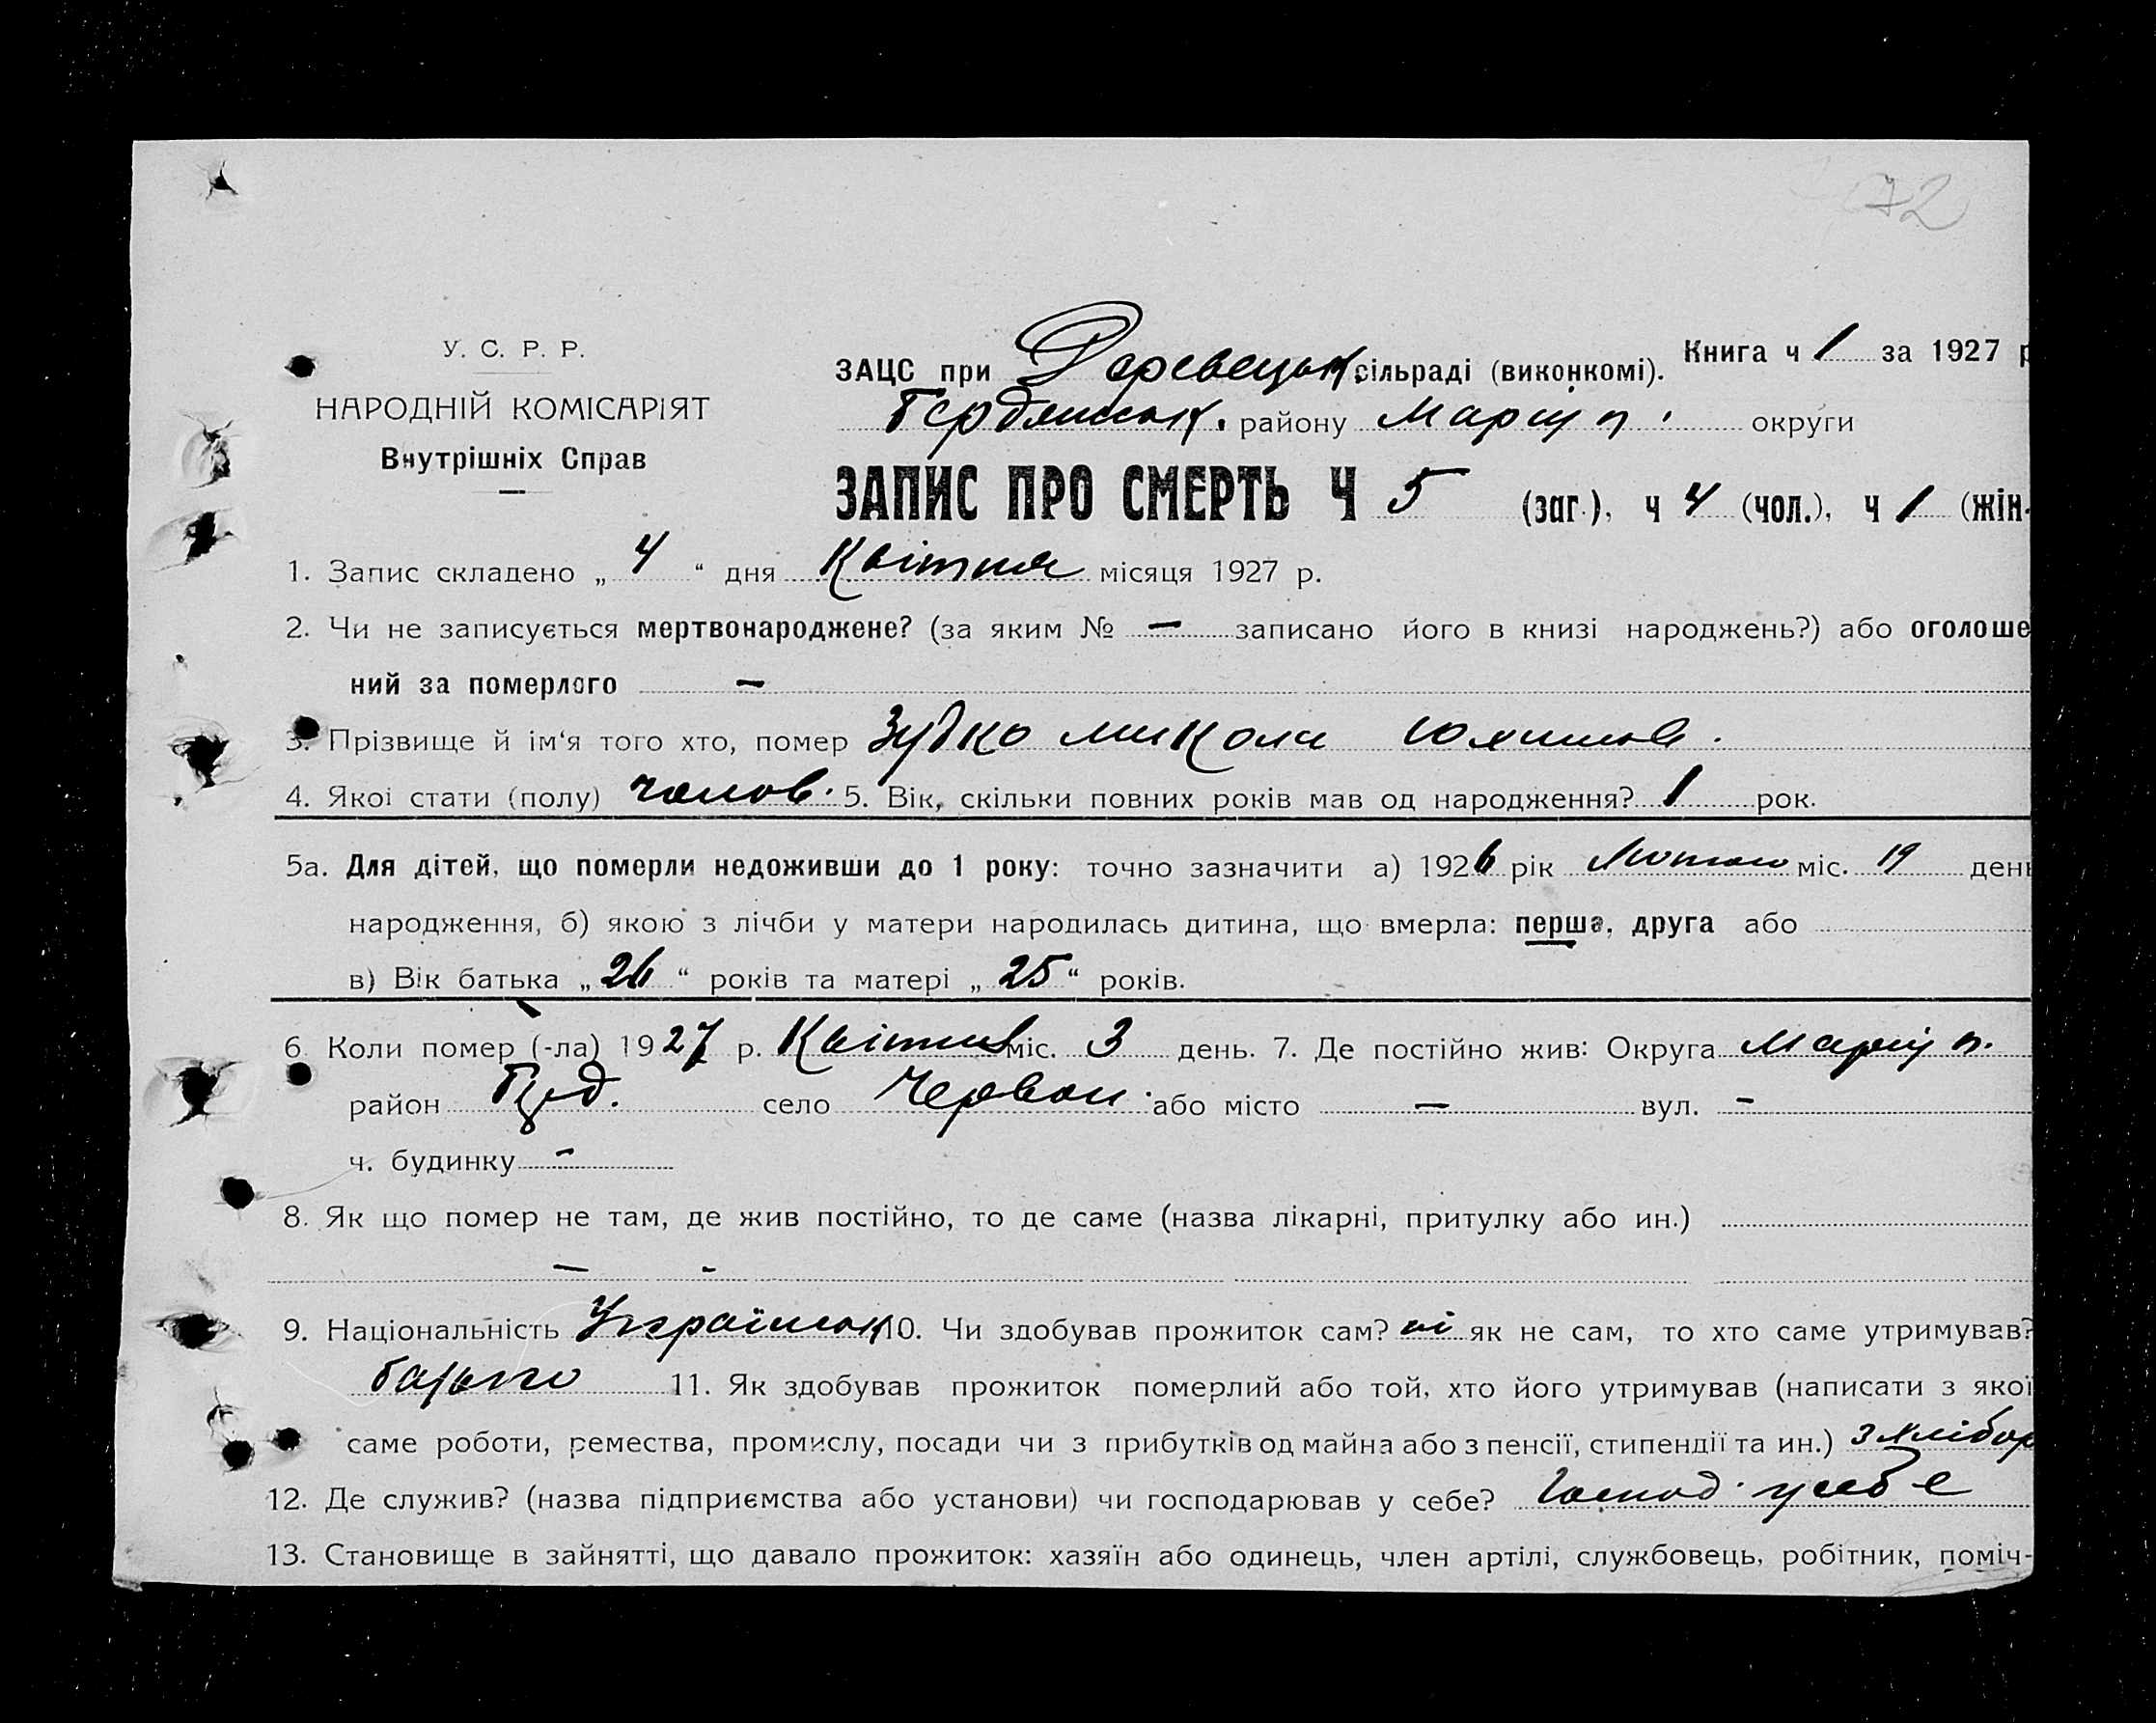 72
У. С. Р. Р.
НАРОДНІЙ КОМІСАРІЯТ
Внутрішніх Справ
Книга ч 1 за 1927 р
ЗАЦС при Деревецьк. сільраді (виконкомі).
Бердянськ. району Маріуп. округи
ЗАПИС ПРО СМЕРТЬ Ч 5 (заг.), ч 4 (чол.), ч 1 (жін.
1. Запис складено „ 4 “ дня Квітня місяця 1927 р.
2. Чи не записується мертвонароджене? (за яким № — записано його в книзі народжень?) або оголоше
ний за померлого —
3. Прізвище й ім‘я того хто, помер Зубко Микола
4. Якої стати (полу) чолов. 5. Вік, скільки повних років мав од народження? 1 рок.
5а. Для дітей, що померли недоживши до 1 року: точно зазначити а) 1926 рік Лютого міс. 19 день
народження, б) якою з лічби у матери народилась дитина, що вмерла: перша, друга або
в) Вік батька „ 26 “ років та матері „ 25 “ років.
6. Коли помер (-ла) 1927 р. Квітня міс. 3 день. 7. Де постійно жив: Округа Маріуп.
район Берд. село Червон. або місто — вул. -
ч. будинку -
8. Як що помер не там, де жив постійно, то де саме (назва лікарні, притулку або ин.)
— -
9. Національність Українськ 10. Чи здобував прожиток сам? ні як не сам, то хто саме утримував?
батько 11. Як здобував прожиток померлий або той, хто його утримував (написати з якої
саме роботи, ремества, промислу, посади чи з прибутків од майна або з пенсії, стипендії та ин.) з хлібор
12. Де служив? (назва підприємства або установи) чи господарював у себе? Господ. у себе
13. Становище в зайнятті, що давало прожиток: хазяїн або одинець, член артілі, службовець, робітник, поміч-